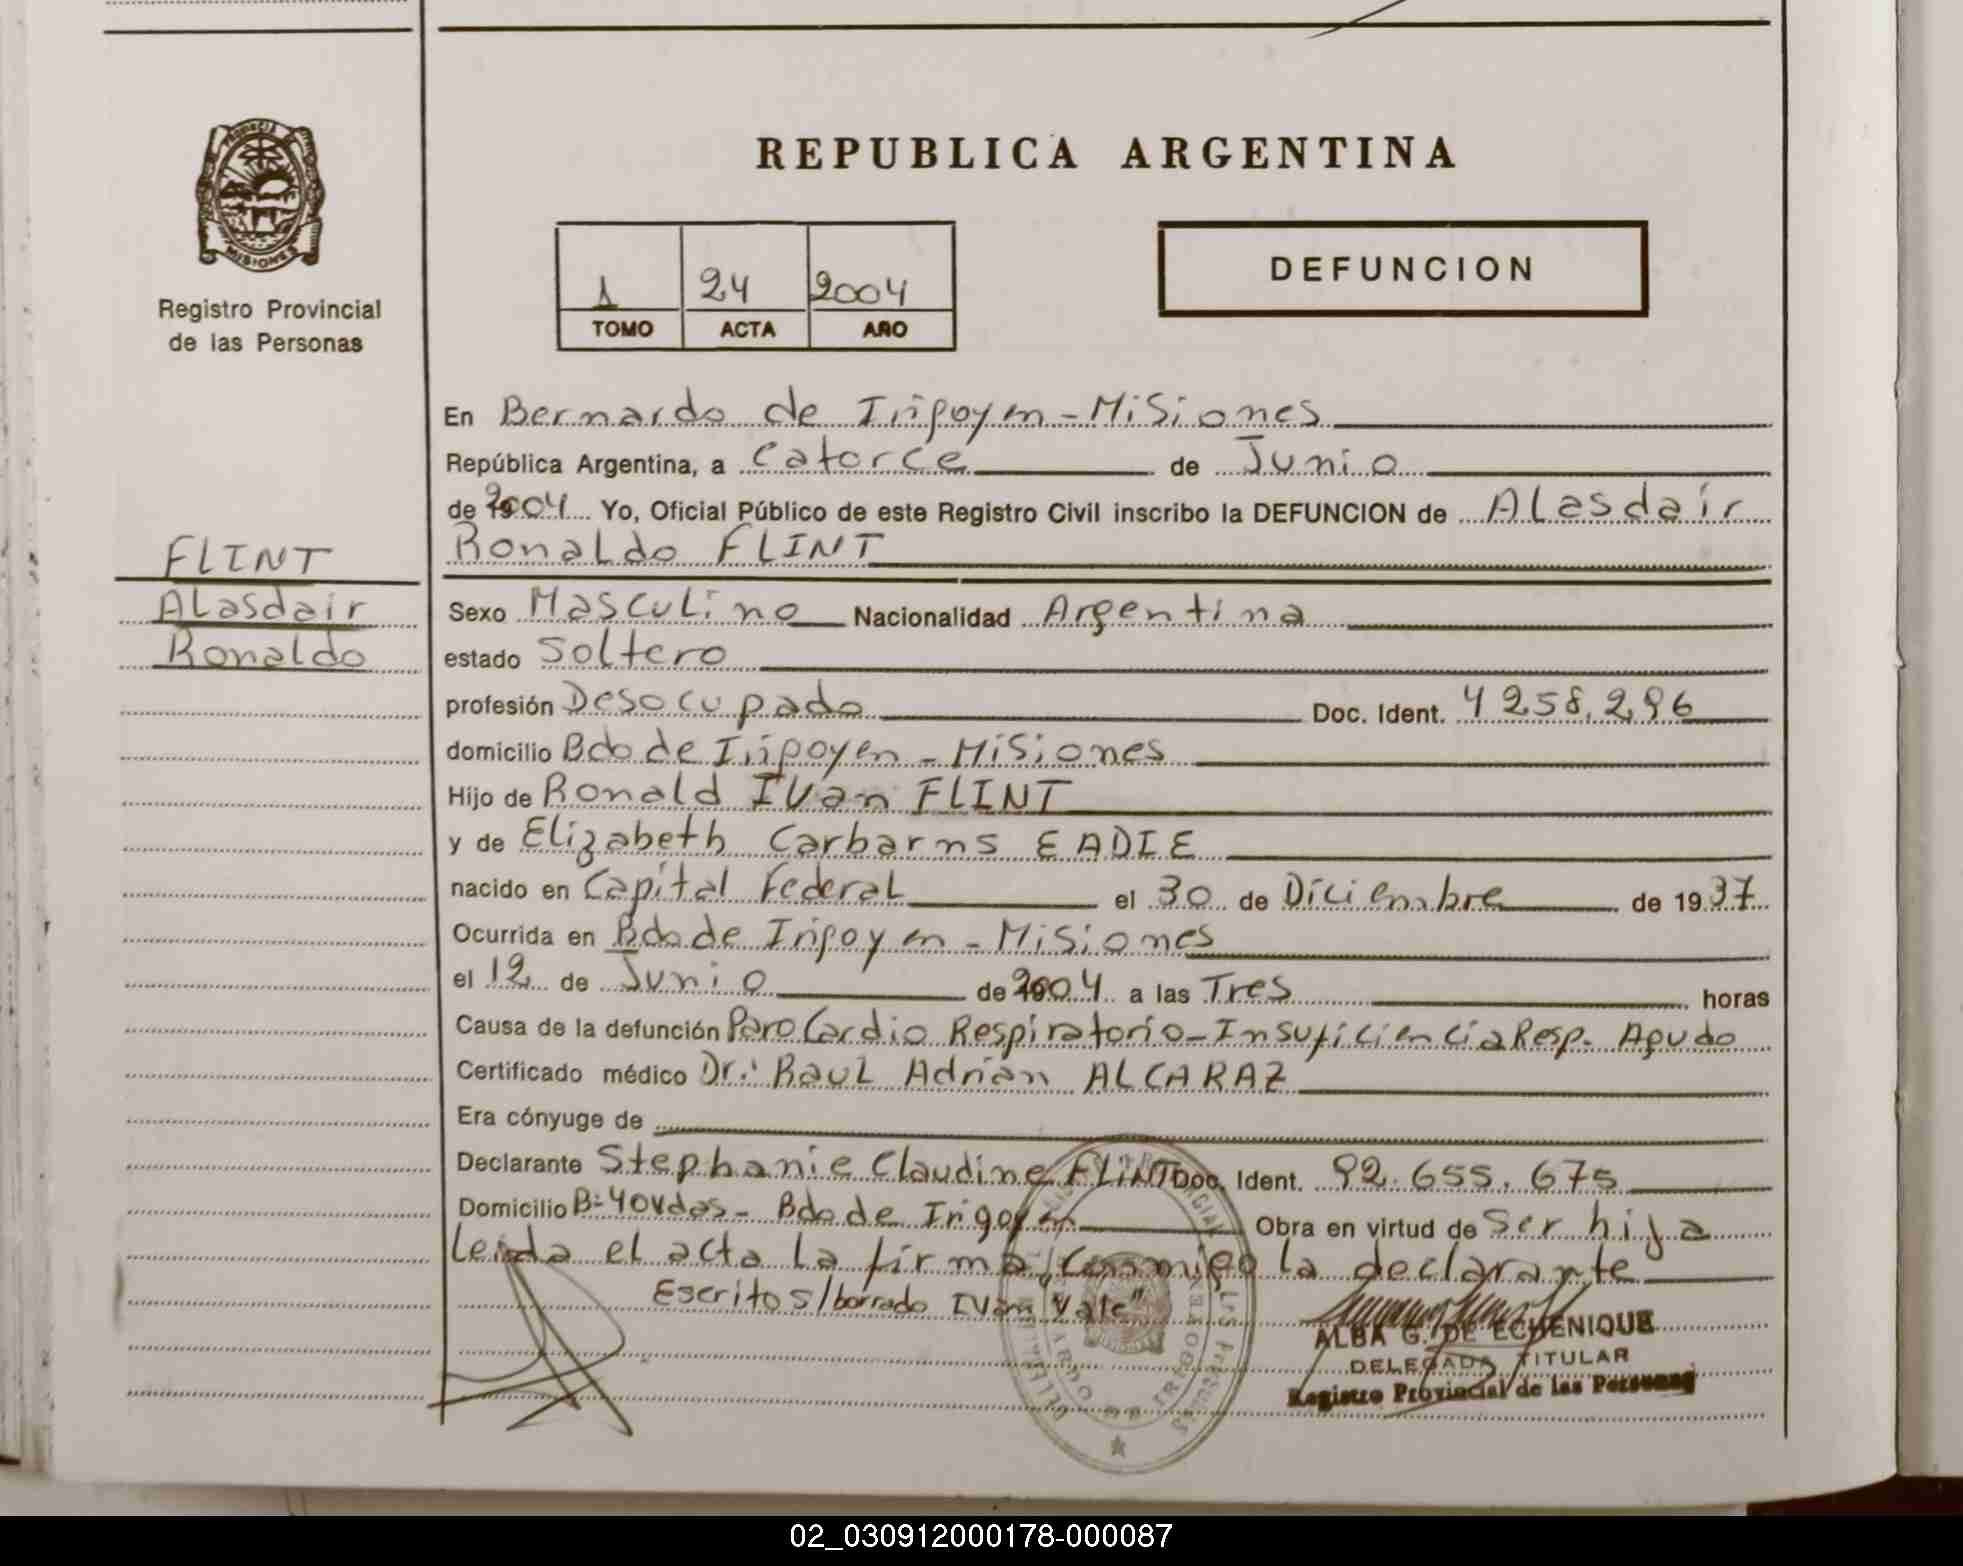 REPUBLICA ARGENTINA
PROVINCIA
MISIONES
Registro Provincial
de las Personas
1 24 2004
TOMO ACTA AÑO
DEFUNCION
FLINT
Alasdair
Ronaldo
En Bernardo de Irigoyen - Misiones
República Argentina, a catorce de Junio
de 2004 Yo, Oficial Público de este Registro Civil inscribo la DEFUNCION de Alasdair
Ronaldo FLINT
Sexo Masculino Nacionalidad Argentina
estado Soltero
profesión Desocupado Doc. Ident. 4258.296
domicilio Bdo de Irigoyen - Misiones
Hijo de Ronald IVan FLINT
y de Elizabeth Carbarns EADIE
nacido en Capital Federal el 30 de Diciembre de 1937
Ocurrida en Bdo de Irigoyen - Misiones
el 12 de Junio de 2004 a las Tres horas
Causa de la defunción Paro Cardio Respiratorio - Insuficiencia Resp. Agudo
Certificado médico Dr: Raul Adrian ALCARAZ
Era cónyuge de
Declarante Stephanie Claudine FLINT Doc. Ident. 92.655.675
Domicilio B= 40Vdas - Bdo de Irigoyen Obra en virtud de Ser hija
Leida el acta la firma conmigo la declarante
Escrito s/borrado IVan "Vale"
ALBA G. DE ECHENIQUE
DELEGADA TITULAR
Registro Provincial de las Personas
02_030912000178-000087